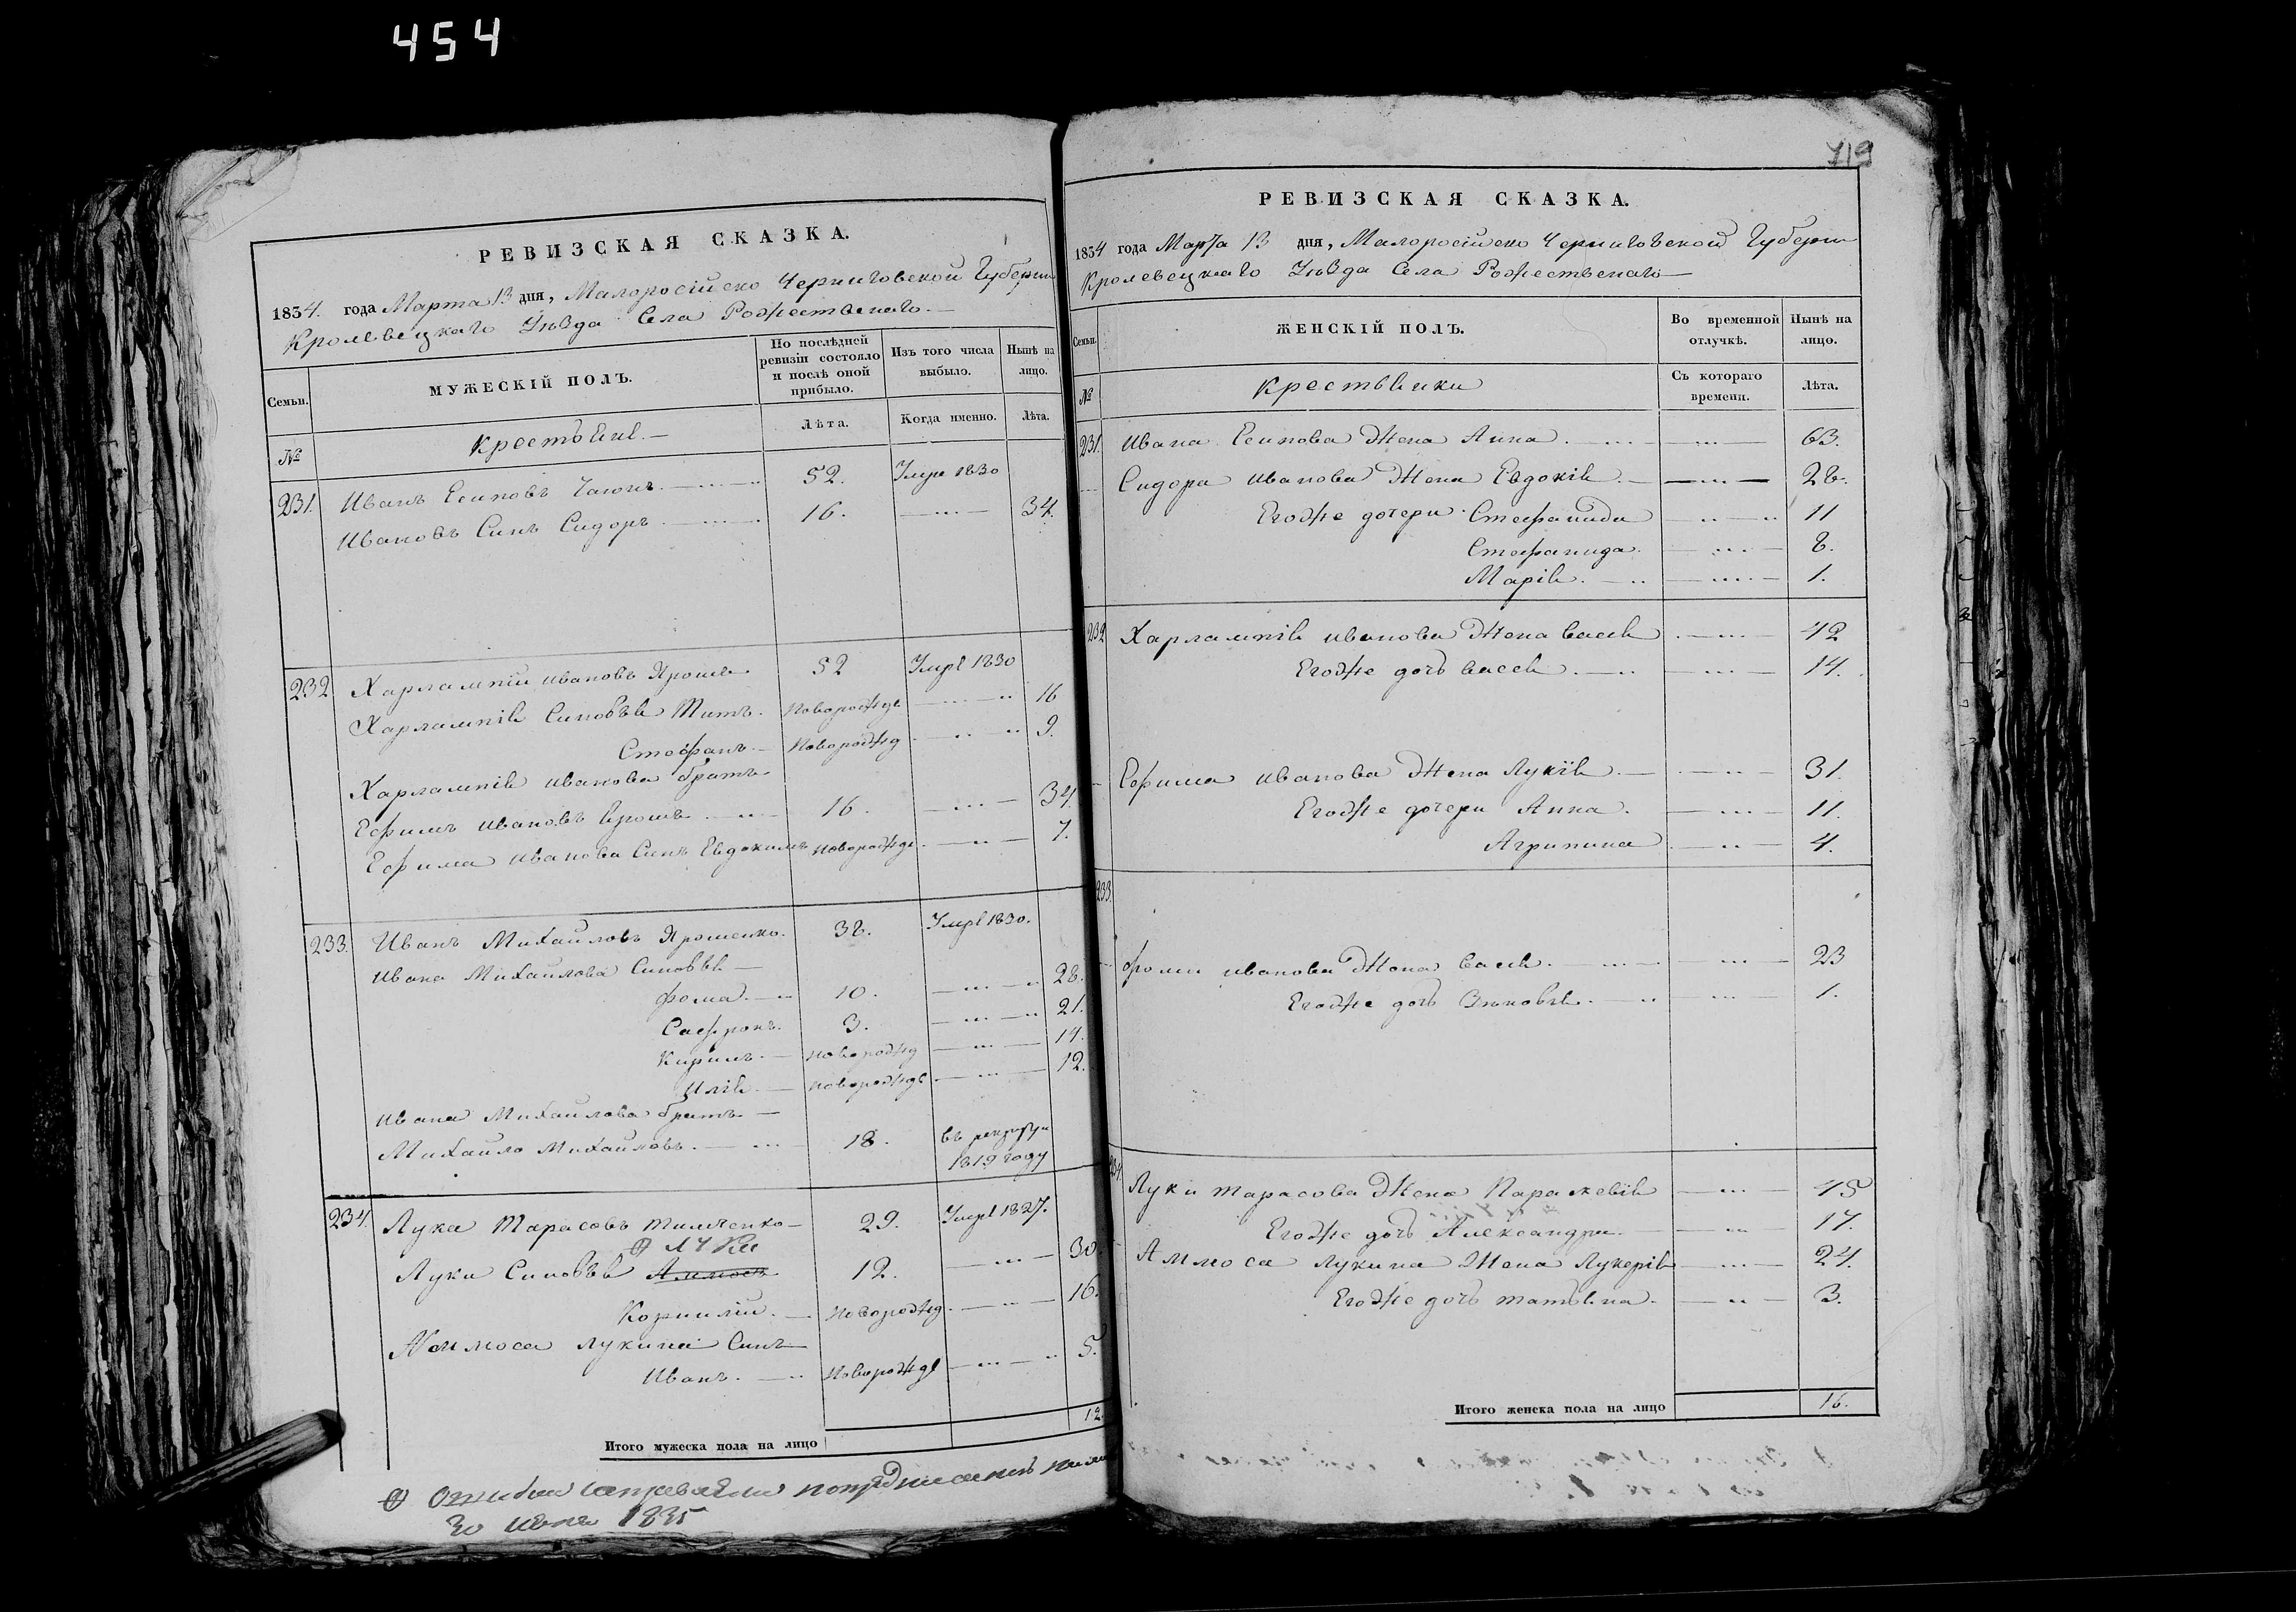 454
РЕВИЗСКАЯ СКАЗКА.
1834. года Марта 13 дня, Малоросійско Черниговской Губерни
Кролевецкаго Уѣзда Села Рожественаго.
Семьи. МУЖЕСКІЙ ПОЛЪ. По послѣдней ревизіи состояло и послѣ оной прибыло. Изъ того числа выбыло. Нынѣ на лицо.
№ Крестьяне. Лѣта. Когда именно. Лѣта.
231. Иванъ Есиповъ 52. Умре 1830
Ивановъ Синъ Сидоръ 16. 34.
232 Харлампій Ивановъ Ярошъ 52 Умре 1830
Харлампія Синовья Титъ. Новорожде 16
Стефанъ. Новорожд 9.
Харлампія Иванова братъ
Ефимъ Ивановъ Ярошъ 16. 34.
Ефима Иванова Синъ Евдокимъ Новорожде. 7.
233. Иванъ Михайловъ Ярошенко. 38. Умре 1830.
Ивана Михайлова Синовья
Фома. 10. 28.
Сафронъ. 3. 21.
Кирилъ. Новорожд 14.
Илія. Новорожде 12.
Ивана Михайлова братъ
Михайло Михайловъ. 18. въ рекруты
1819 году
234. Лука Тарасовъ Тимченко 29. Умре 1827.
Луки Синовья Аммосъ 12. 30.
Корнилій. Новорожд. 16.
Аммоса Лукина Синъ
Иванъ. Новорожде 5.
Итого мужеска пола на лицо 12.
30 июня 1835
719
РЕВИЗСКАЯ СКАЗКА.
1834 года Марта 13 дня, Малоросійско Черниговской Губерни
Кролевецкаго Уѣзда Села Рожественаго
Семьи. ЖЕНСКІЙ ПОЛЪ. Во временной отлучкѣ. Нынѣ на лицо.
№ Крестьянки Съ котораго времени. Лѣта.
231. Ивана Есипова Жена Анна 63.
Сидора Иванова Жена Евдокія 28.
Егоже дочери Стефанида 11
Стефанида. 8.
Марія. 1.
232 Харлампія Иванова Жена Васса 42
Егоже дочь Васса 14.
Ефима Иванова Жена Лукія 31.
Егоже дочери Анна. 11.
Агрипина 4.
233.
Фоми Иванова Жена Васса 23
Егоже дочь Зѣновія. 1.
234 Луки Тарасова Жена Параскевія 45
Егоже дочь Александра 17.
Аммоса Лукина Жена Лукерія 24.
Егоже дочь Татьяна. 3.
Итого женска пола на лицо 16.